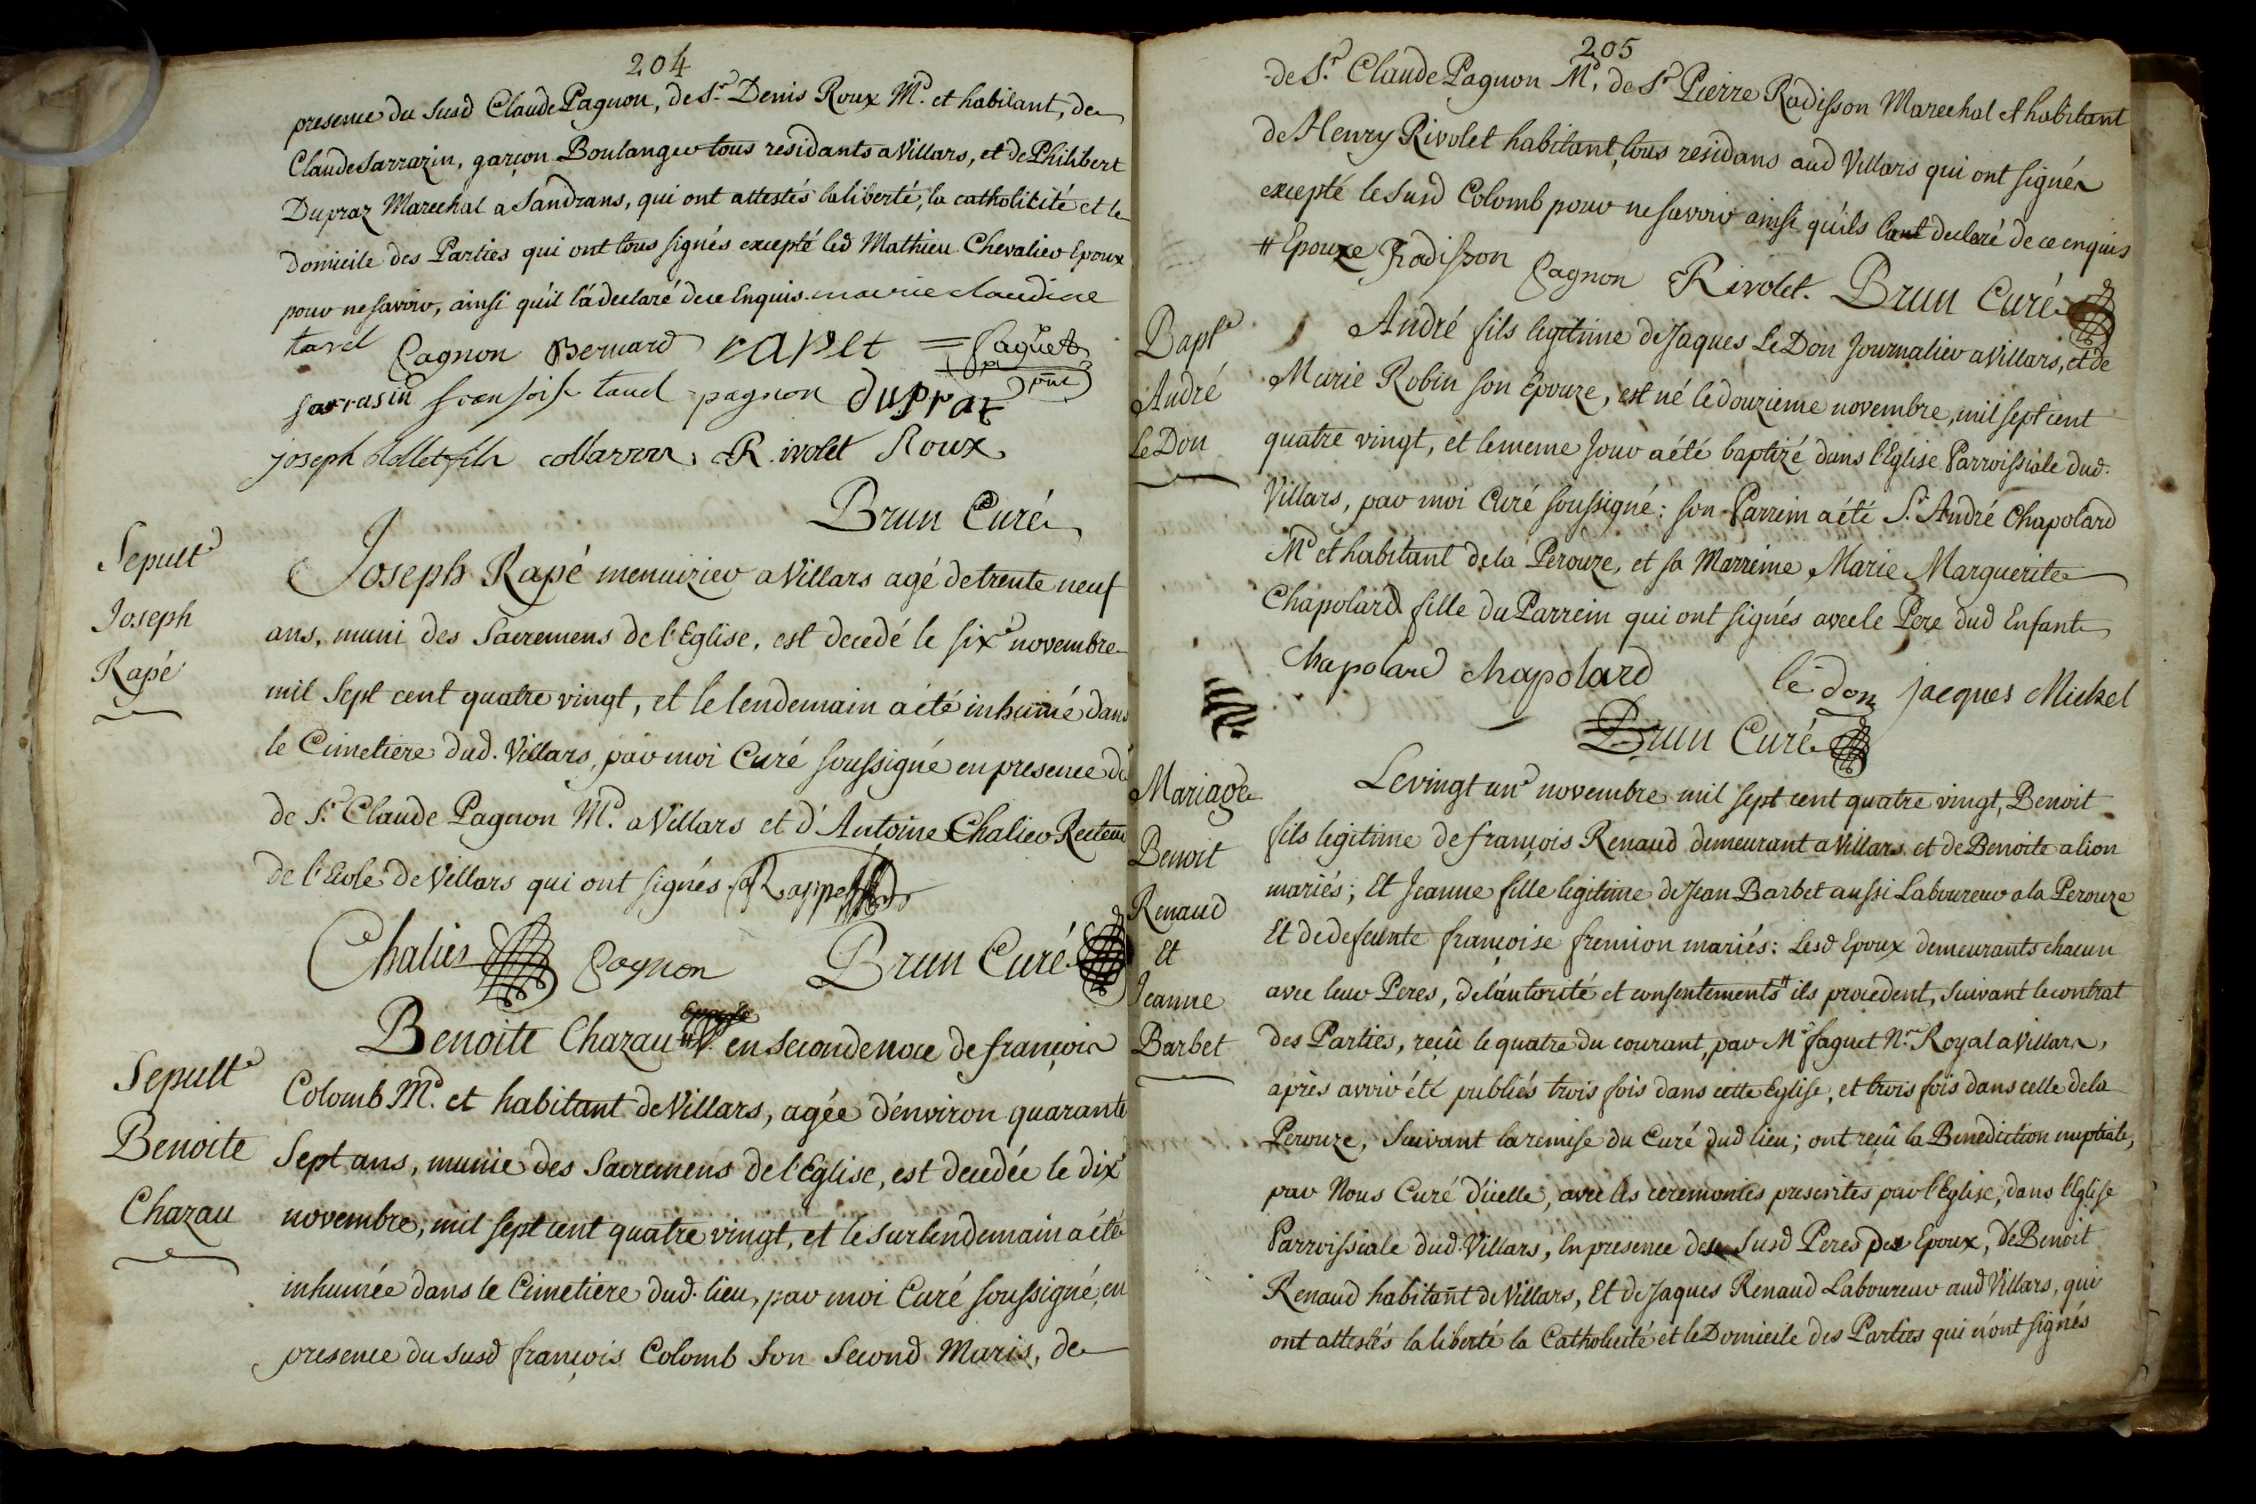 204
presence du susd Claude Pagnon, de Sr. Denis Roux Md. et habitant, de
Claude Sarrazin, garçon Boulanger tous residants a Villars, et de Philibert
Dupraz Marechal a Sandrans, qui ont attestés la liberté, la catholicité et le
Domicile des Parties qui ont tous signés excepté led Mathieu Chevalier Epoux
pour ne savoir, ainsi qu'il l'a declaré de ce Enquis. marie claudine
tavel Pagnon Bernard rapet = faguet
sarrasin fransois tavel pagnon dupraz
joseph Mollet fils collavoz Rivolet Roux
Brun Curé
Sepultre
Joseph
Rapé
Joseph Rapé menuizier a Villars agé de trente neuf
ans, muni des Sacremens de l'Eglise, est decedé le sixe novembre
mil sept cent quatre vingt, et le lendemain a été inhumé dans
le Cimetiere dud. Villars, par moi Curé soussigné en presence de
de Sr. Claude Pagnon Md. a Villars et d'Antoine Chalier Recteur
de l'Ecole de Villars qui ont signés. Rappe
Chalier Pagnon Brun Curé
Sepultre
Benoite
Chazau
Benoite Chazau # en seconde noce de françois
Colomb Md. et habitant de Villars, agée d'environ quarante
Sept ans, munie des Sacremens de l'Eglise, est decedée le dixe
novembre, mil sept cent quatre vingt, et le surlendemain a été
inhumée dans le Cimetiere dud. lieu, par moi Curé soussigné, en
presence du susd françois Colomb son second Maris, de
205
de Sr. Claude Pagnon Md, de Sr Pierre Radisson Marechal et habitant
de Henry Rivolet habitant, tous residans aud Villars qui ont signés
excepté le susd Colomb pour ne savoir ainsi qu'ils l'ont declaré de ce enquis
# Epouze Radisson Pagnon Rivolet. Brun Curé
Baptre
André
le Don
André fils legitime de Jaques Le Don Journalier a Villars, et de
Marie Robin son Epouze, est né le douzieme novembre, mil sept cent
quatre vingt, et le meme Jour a été baptizé dans l'Eglise Parroissiale dud.
Villars, par moi Curé soussigné: son Parrein a été Sr. André Chapolard
Md et habitant de la Perouze, et sa Marreine Marie Marguerite
Chapolard fille du Parrein qui ont signés avec le Pere dud Enfant
Chapolard chapolard le don jacques Michel
Brun Curé
Mariage
Benoit
Renaud
Et
Jeanne
Barbet
Le vingt une novembre mil sept cent quatre vingt, Benoit
fils legitime de françois Renaud demeurant a Villars et de Benoite alion
mariés; Et Jeanne fille legitime de Jean Barbet aussi Laboureur a la Perouze
Et de defeunte françoise fremion mariés: Lesd Epoux demeurants chacun
avec leur Peres, de l'autorité et consentements # ils procedent, suivant le contrat
des Parties, reçû le quatre du courant, par Me faguet Nre. Royal a Villars,
après avoir été publiés trois fois dans cette Eglise, et trois fois dans celle de la
Perouze, suivant la remise du Curé dud lieu; ont reçû la Benediction nuptiale,
par Nous Curé d'icelle, avec les ceremonies prescrites par l'Eglise, dans l'Eglise
Parroissiale dud. Villars, en presence des susd Peres des Epoux, de Benoit
Renaud habitant de Villars, Et de Jaques Renaud Laboureur aud Villars, qui
ont attestés la liberté la Catholicité et le Domicile des Parties qui n'ont signés